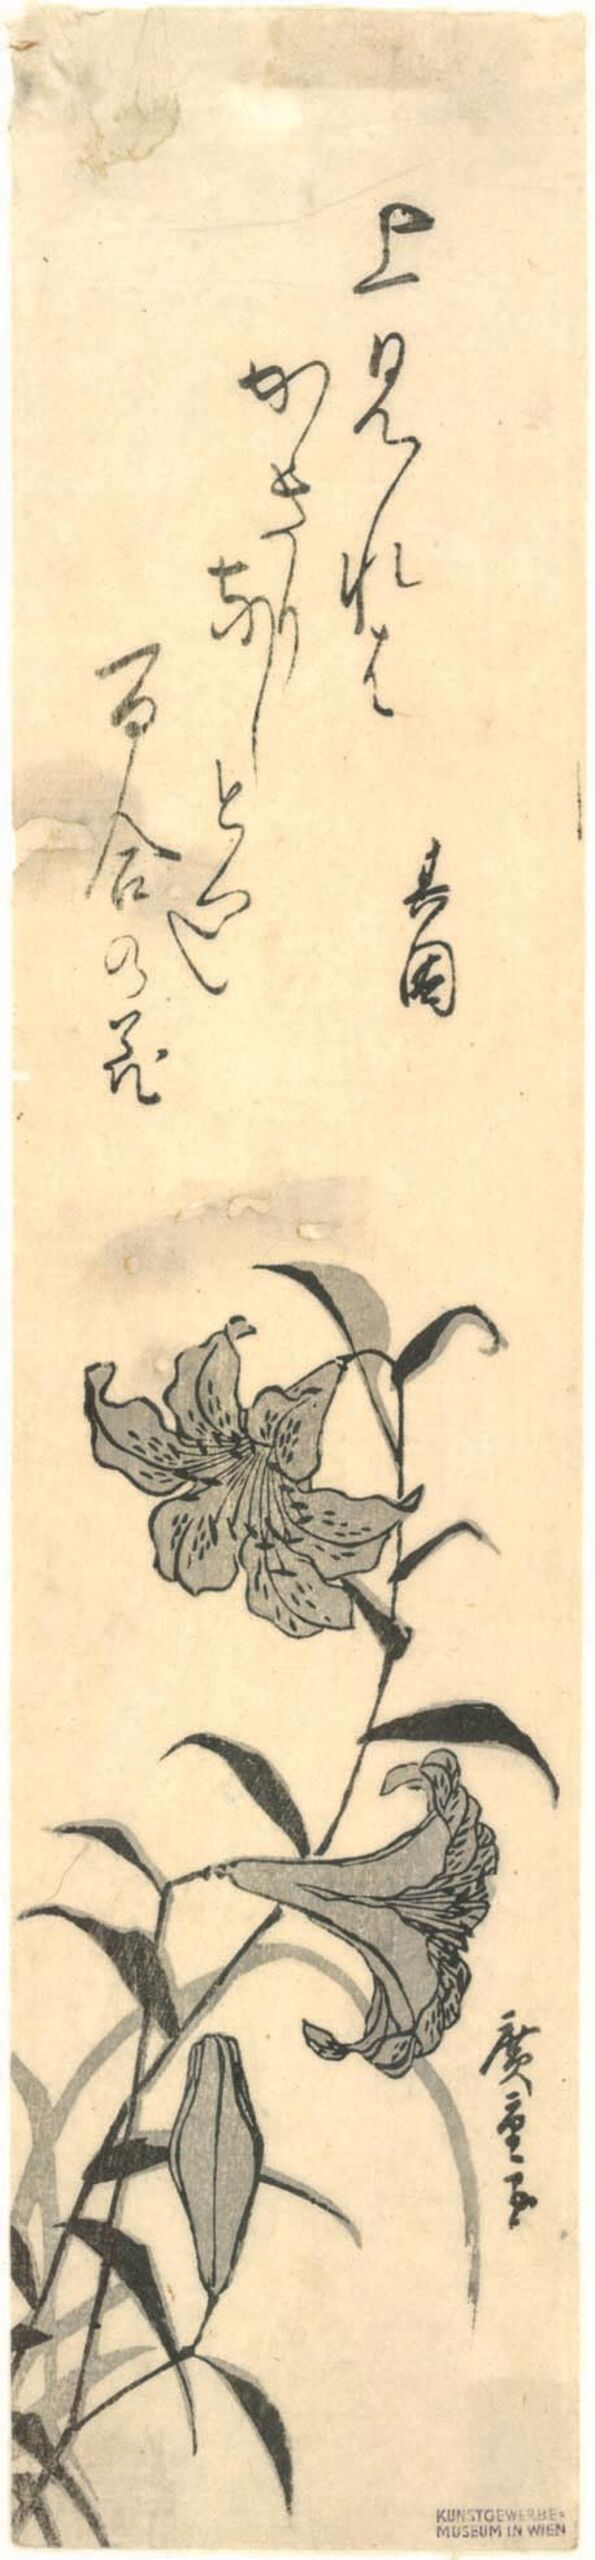 上見れは
かきり
なしと
百合の花
廣重画
KUNSTGEWERBE=
MUSEUM IN WIEN